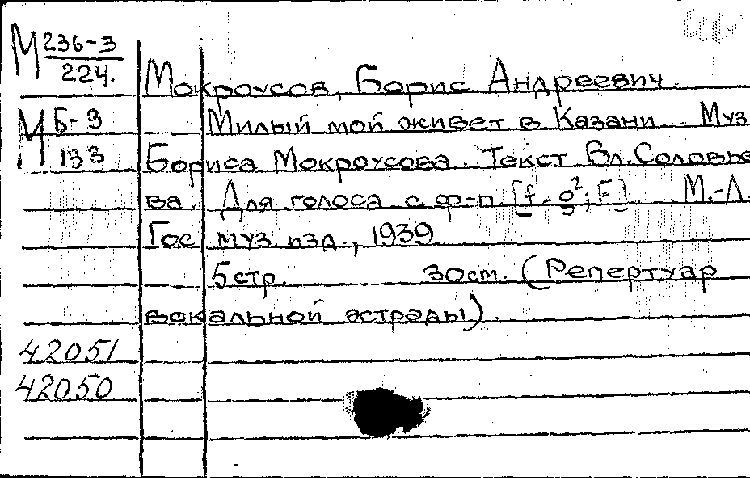 М 236-3
224.
Мокроусов, Борис Андреевич.
М Б-3
133
Милый мой живет в Казани. Муз.
Бориса Мокроусова. Текст Вл. Соловье-
ва. Для голоса с ф-п. [f. - g²; F] М.-Л.
Гос муз изд., 1939
5 стр. 30 см. (Репертуар
вокальной эстрады)
42051
42050